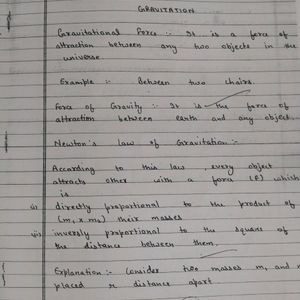 GRAVITATION
Gravitational Force :- It is a force of
attraction between any two objects in the
universe
Example :- Between two chairs.
Force of Gravity :- It is the force of
attraction between earth and any object.
Newton's law of Gravitation :-
According to this law, every object
attracts other with a force (F) which
is
i) directly proportional to the product of
(m, x m2) their masses
ii) inversly proportional to the square of
the distance between them,
Explanation :- Consider two masses m, and
placed r distance apart